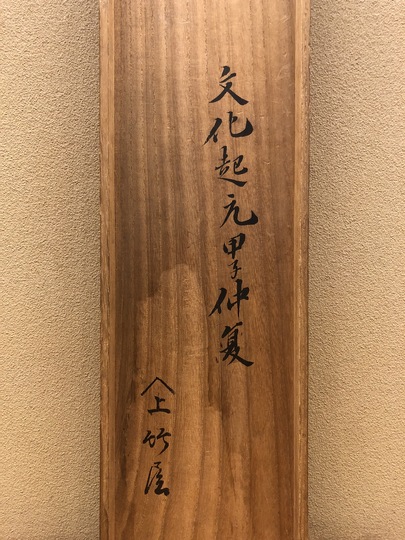 文化起元甲子仲夏
𠆢上竹屋